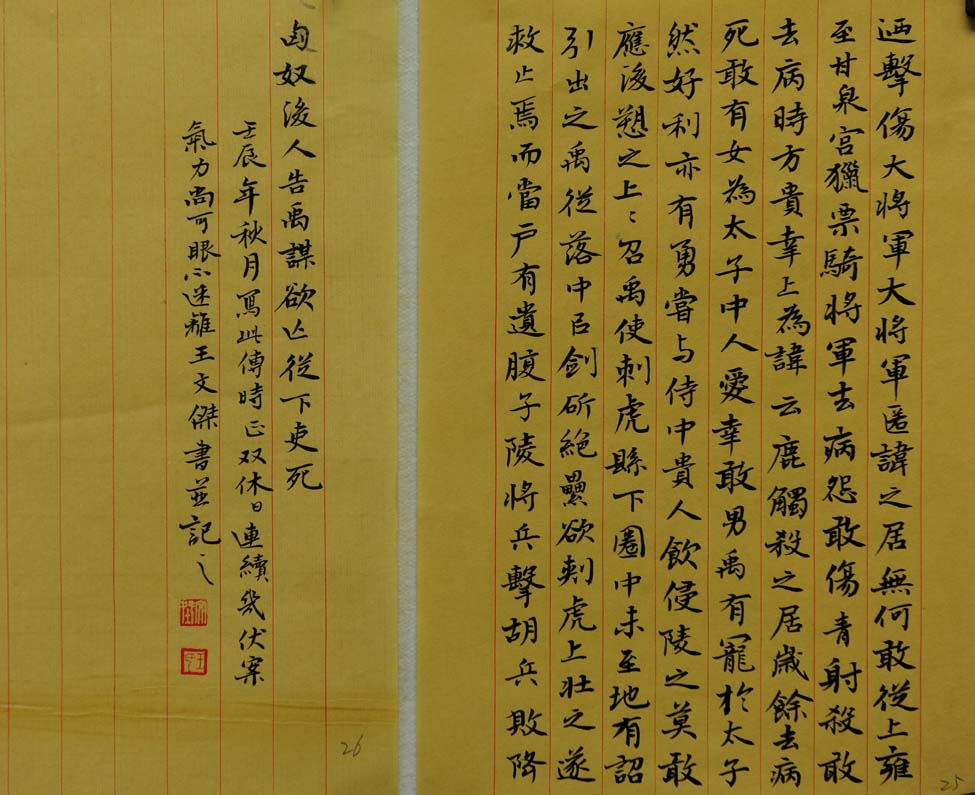 迺擊傷大將軍大將軍匿諱之居無何敢從上雍
至甘泉宮獵票騎將軍去病怨敢傷青射殺敢
去病時方貴幸上為諱云鹿觸殺之居歲餘去病
死敢有女為太子中人愛幸敢男禹有寵於太子
然好利亦有勇嘗与侍中貴人飲侵陵之莫敢
應後愬之上〻召禹使刺虎縣下圈中未至地有詔
引出之禹從落中㠯劍斫絕纍欲刺虎上壯之遂
救止焉而當戶有遺腹子陵將兵擊胡兵敗降
25
匈奴後人告禹謀欲亡從下吏死
壬辰年秋月寫此傳時正双休日連續幾伏案
氣力尚可眼小迷離王文傑書並記之
26